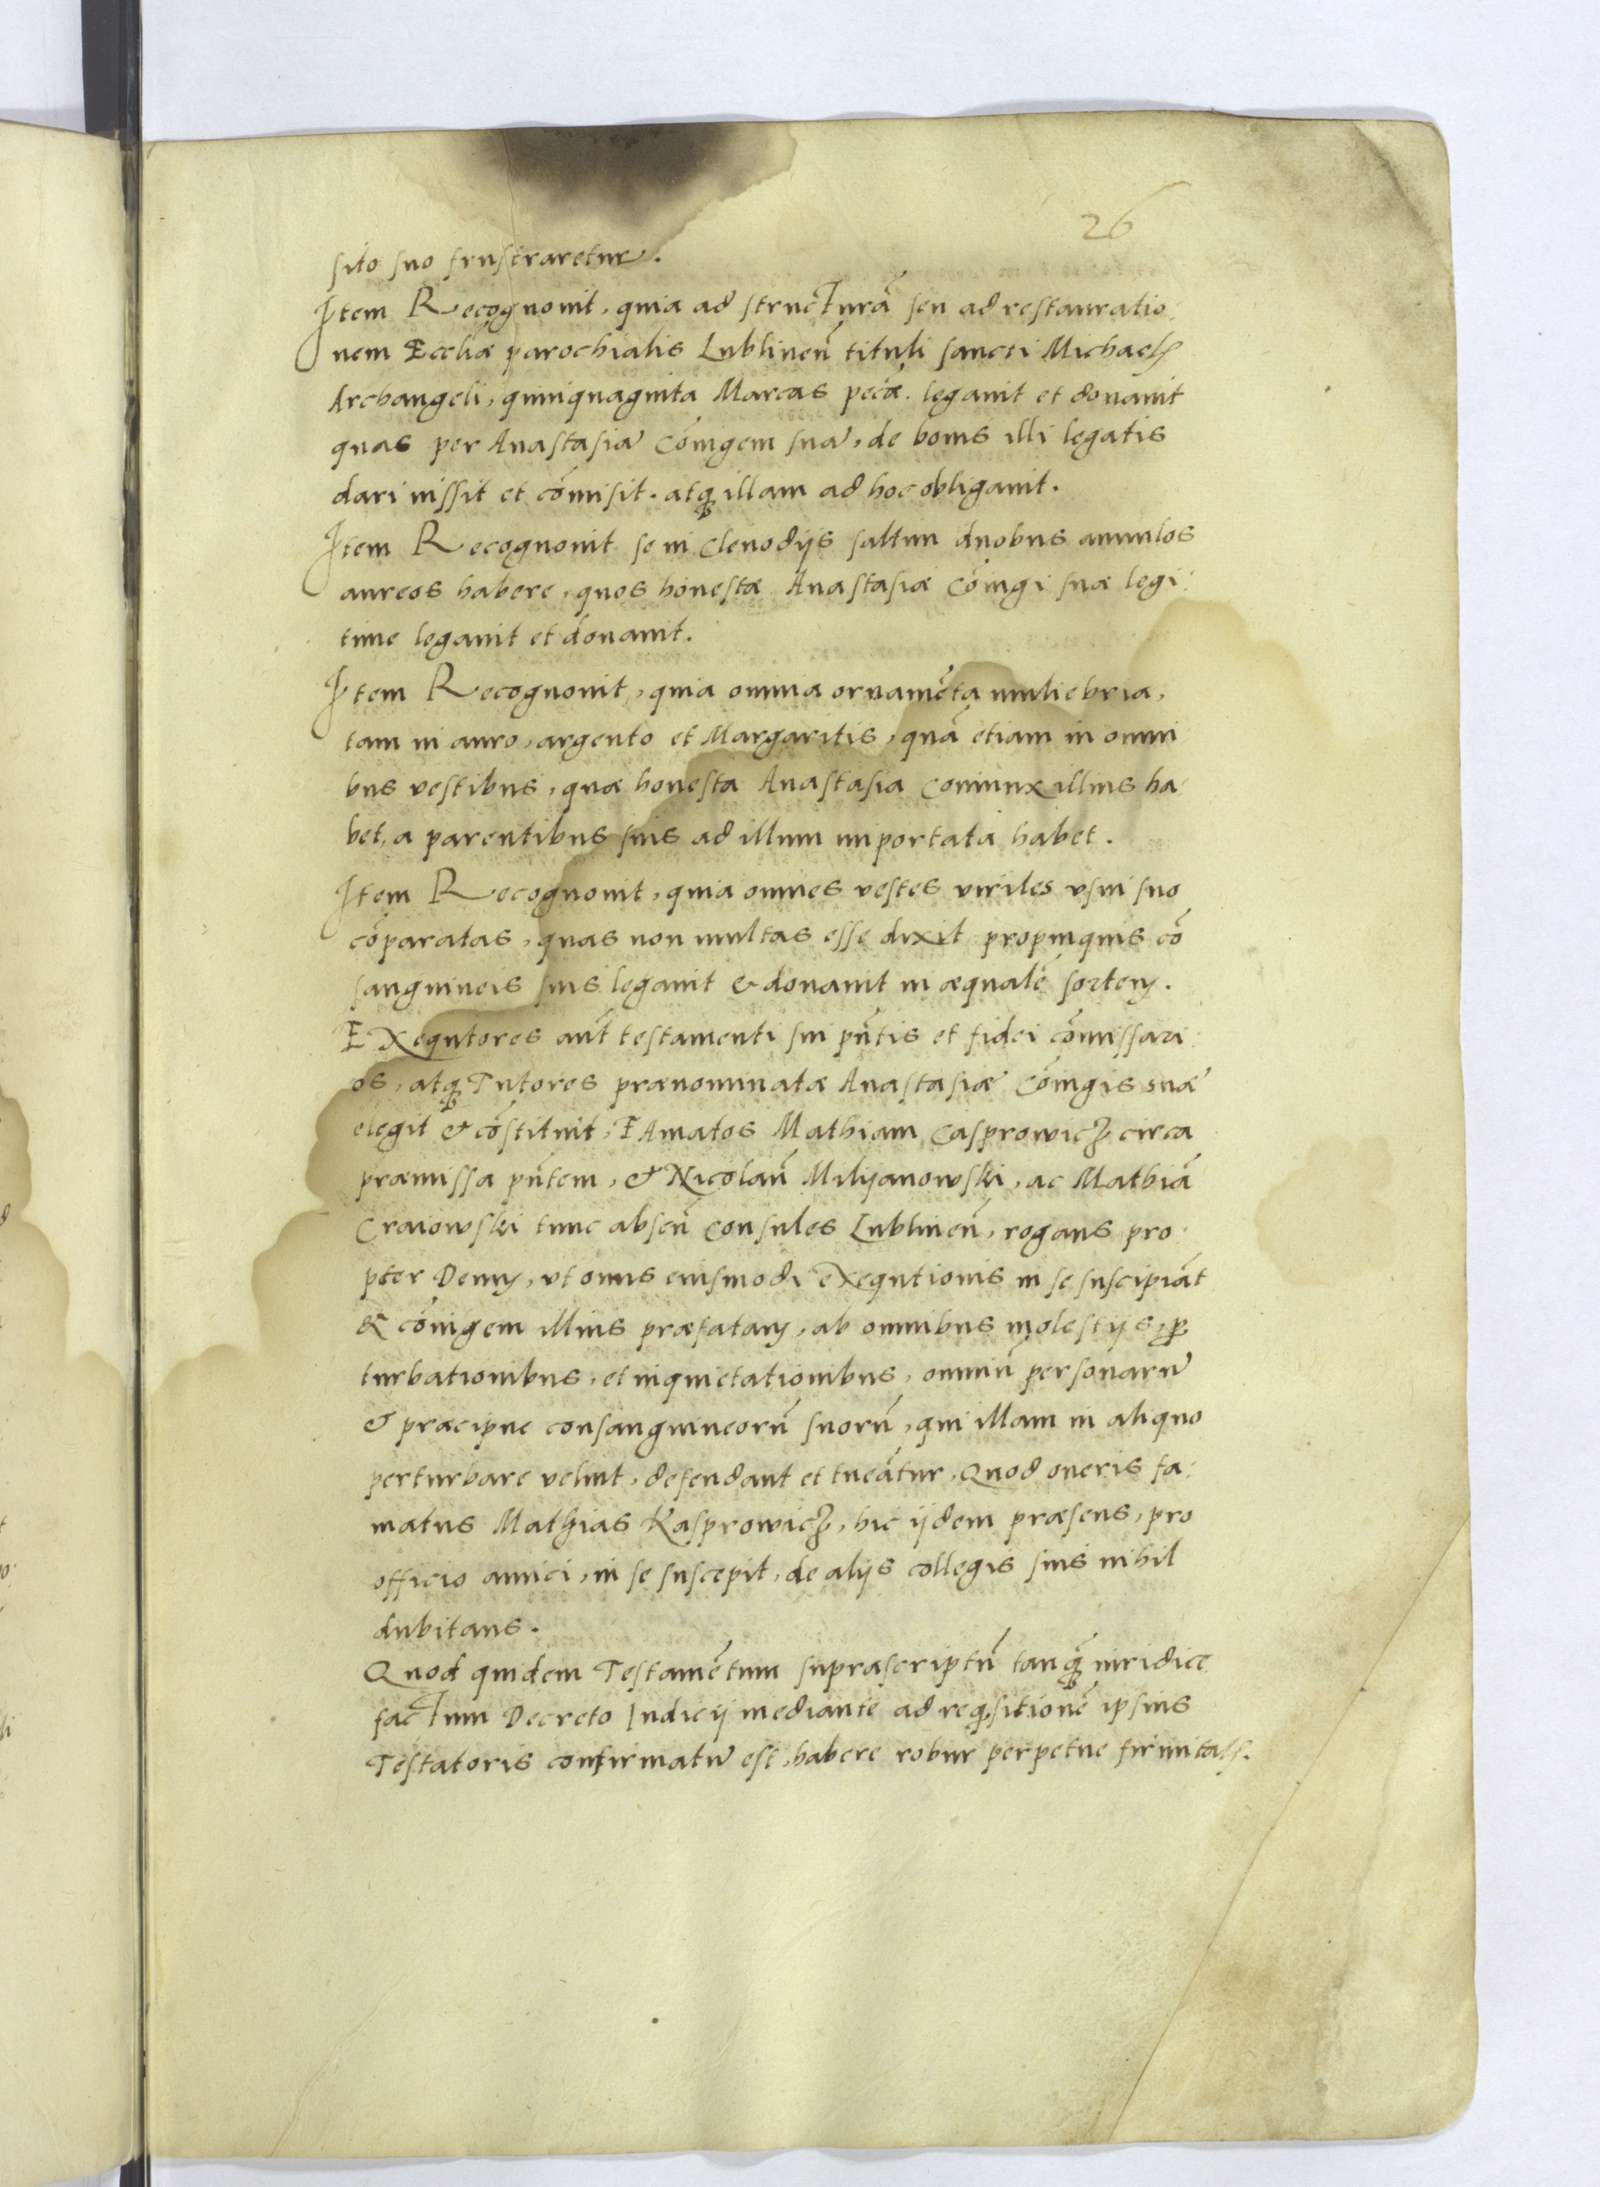 26
sito suo frustraretur.
Item Recognouit, quia ad structurā seu ad restauratio
nem Eccliæ parochialis Lublineñ tituli sancti Michaelis
Archangeli, quinquaginta Marcas pecæ. legauit et donauit
quas per Anastasiā Cōiugem suā, de bonis illi legatis
dari iussit et cōmisit. atq illam ad hoc obligauit.
Item Recognouit se in Clenodijs saltim duobus annulos
aureos habere, quos honestæ Anastasiæ Cōiugi suæ legi
time legauit et donauit.
Item Recognouit, quia omnia ornamēta muliebria,
tam in auro, argento et Margaritis, quā etiam in omni
bus vestibus, quæ honesta Anastasia Coniunx illius ha
bet, a parentibus suis ad illum importata habet.
Item Recognouit, quia omnes vestes viriles vsui suo
cōparatas, quas non multas esse dixit propinquis cō
sanguineis suis legauit & donauit in æqualē sortem.
Exequtores aūt testamenti sui pñtis et fidei cōmissari
os, atq Tutores prænominatæ Anastasiæ Cōiugis suæ
elegit & cōstituit, FAmatos Mathiam Casprowicz circa
præmissa pñtem, & Nicolaū Milijanowski, ac Mathiā
Craiowski tunc abseñ Consules Lublineñ, rogans pro
pter Deum, vt onus eiusmodi exequtionis in se suscipiāt
& cōiugem illius præfatam, ab omnibus molestijs, per
turbationibus, et inquietationibus, omniū personarū
& præcipue consanguineorū suorū, qui illam in aliquo
perturbare velint, defendant et tueātur, Quod oneris fa
matus Mathias Kasprowicz, hic ijdem præsens, pro
officio amici, in se suscepit, de alijs collegis suis nihil
dubitans.
Quod quidem Testamētum suprascriptū tanq̄ iuridice
factum Decreto Iudicij mediante ad reqsitionē ipsius
Testatoris confirmatū est, habere robur perpetue firmitatis.